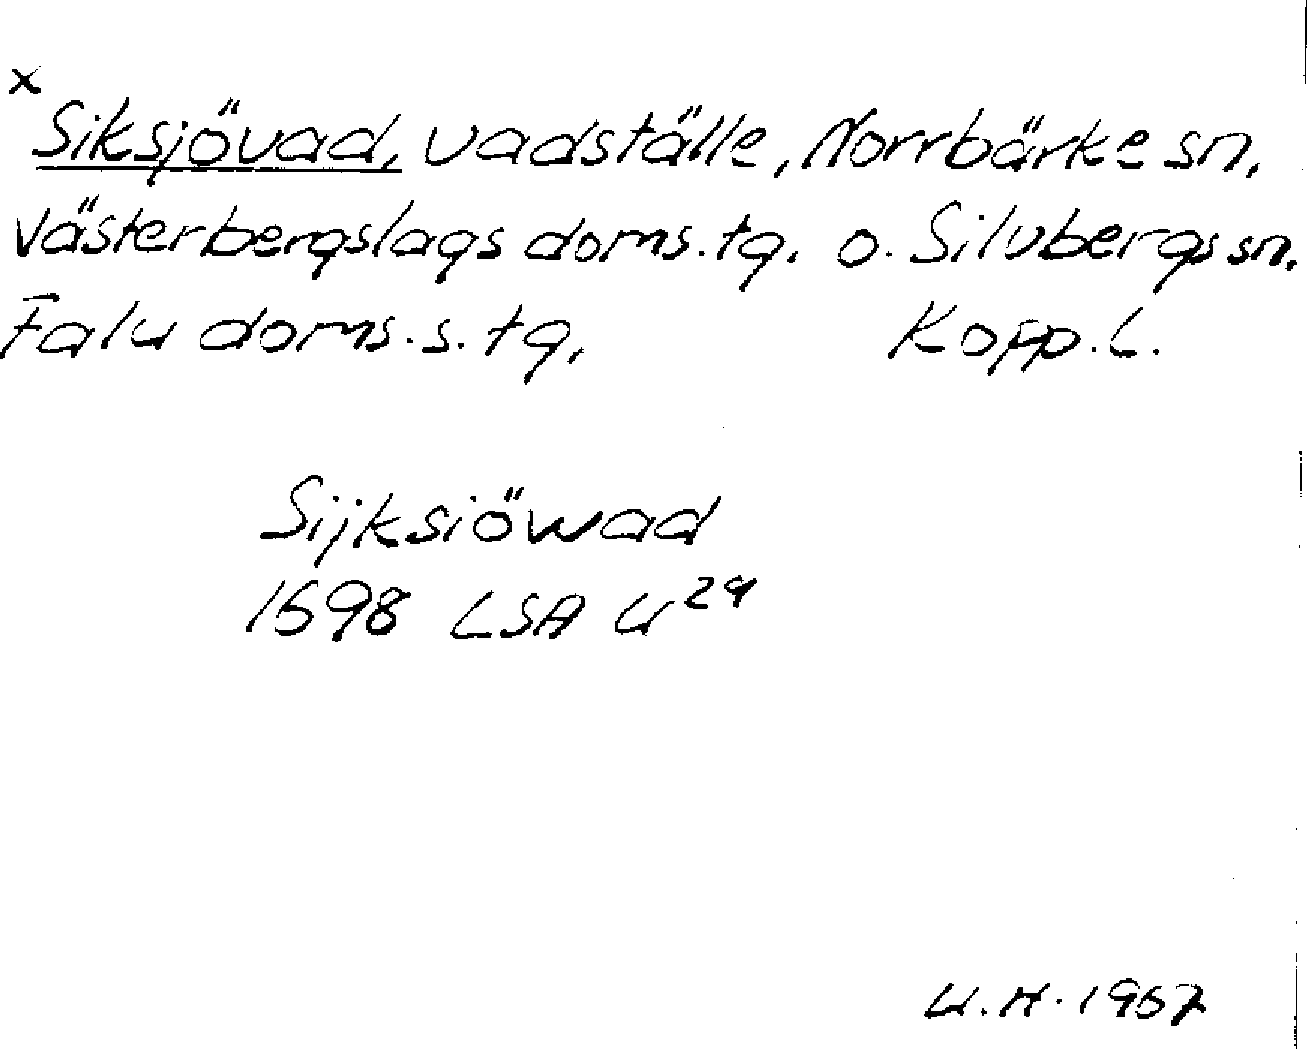 x
Siksjövad, vadställe, Norrbärke sn.
Västerbergslags doms. tg. o. Silvbergs sn.
Falu doms.s. tg. Kopp. L.
Sijksiöwad
1698 LSA U 29
U.H. 1967